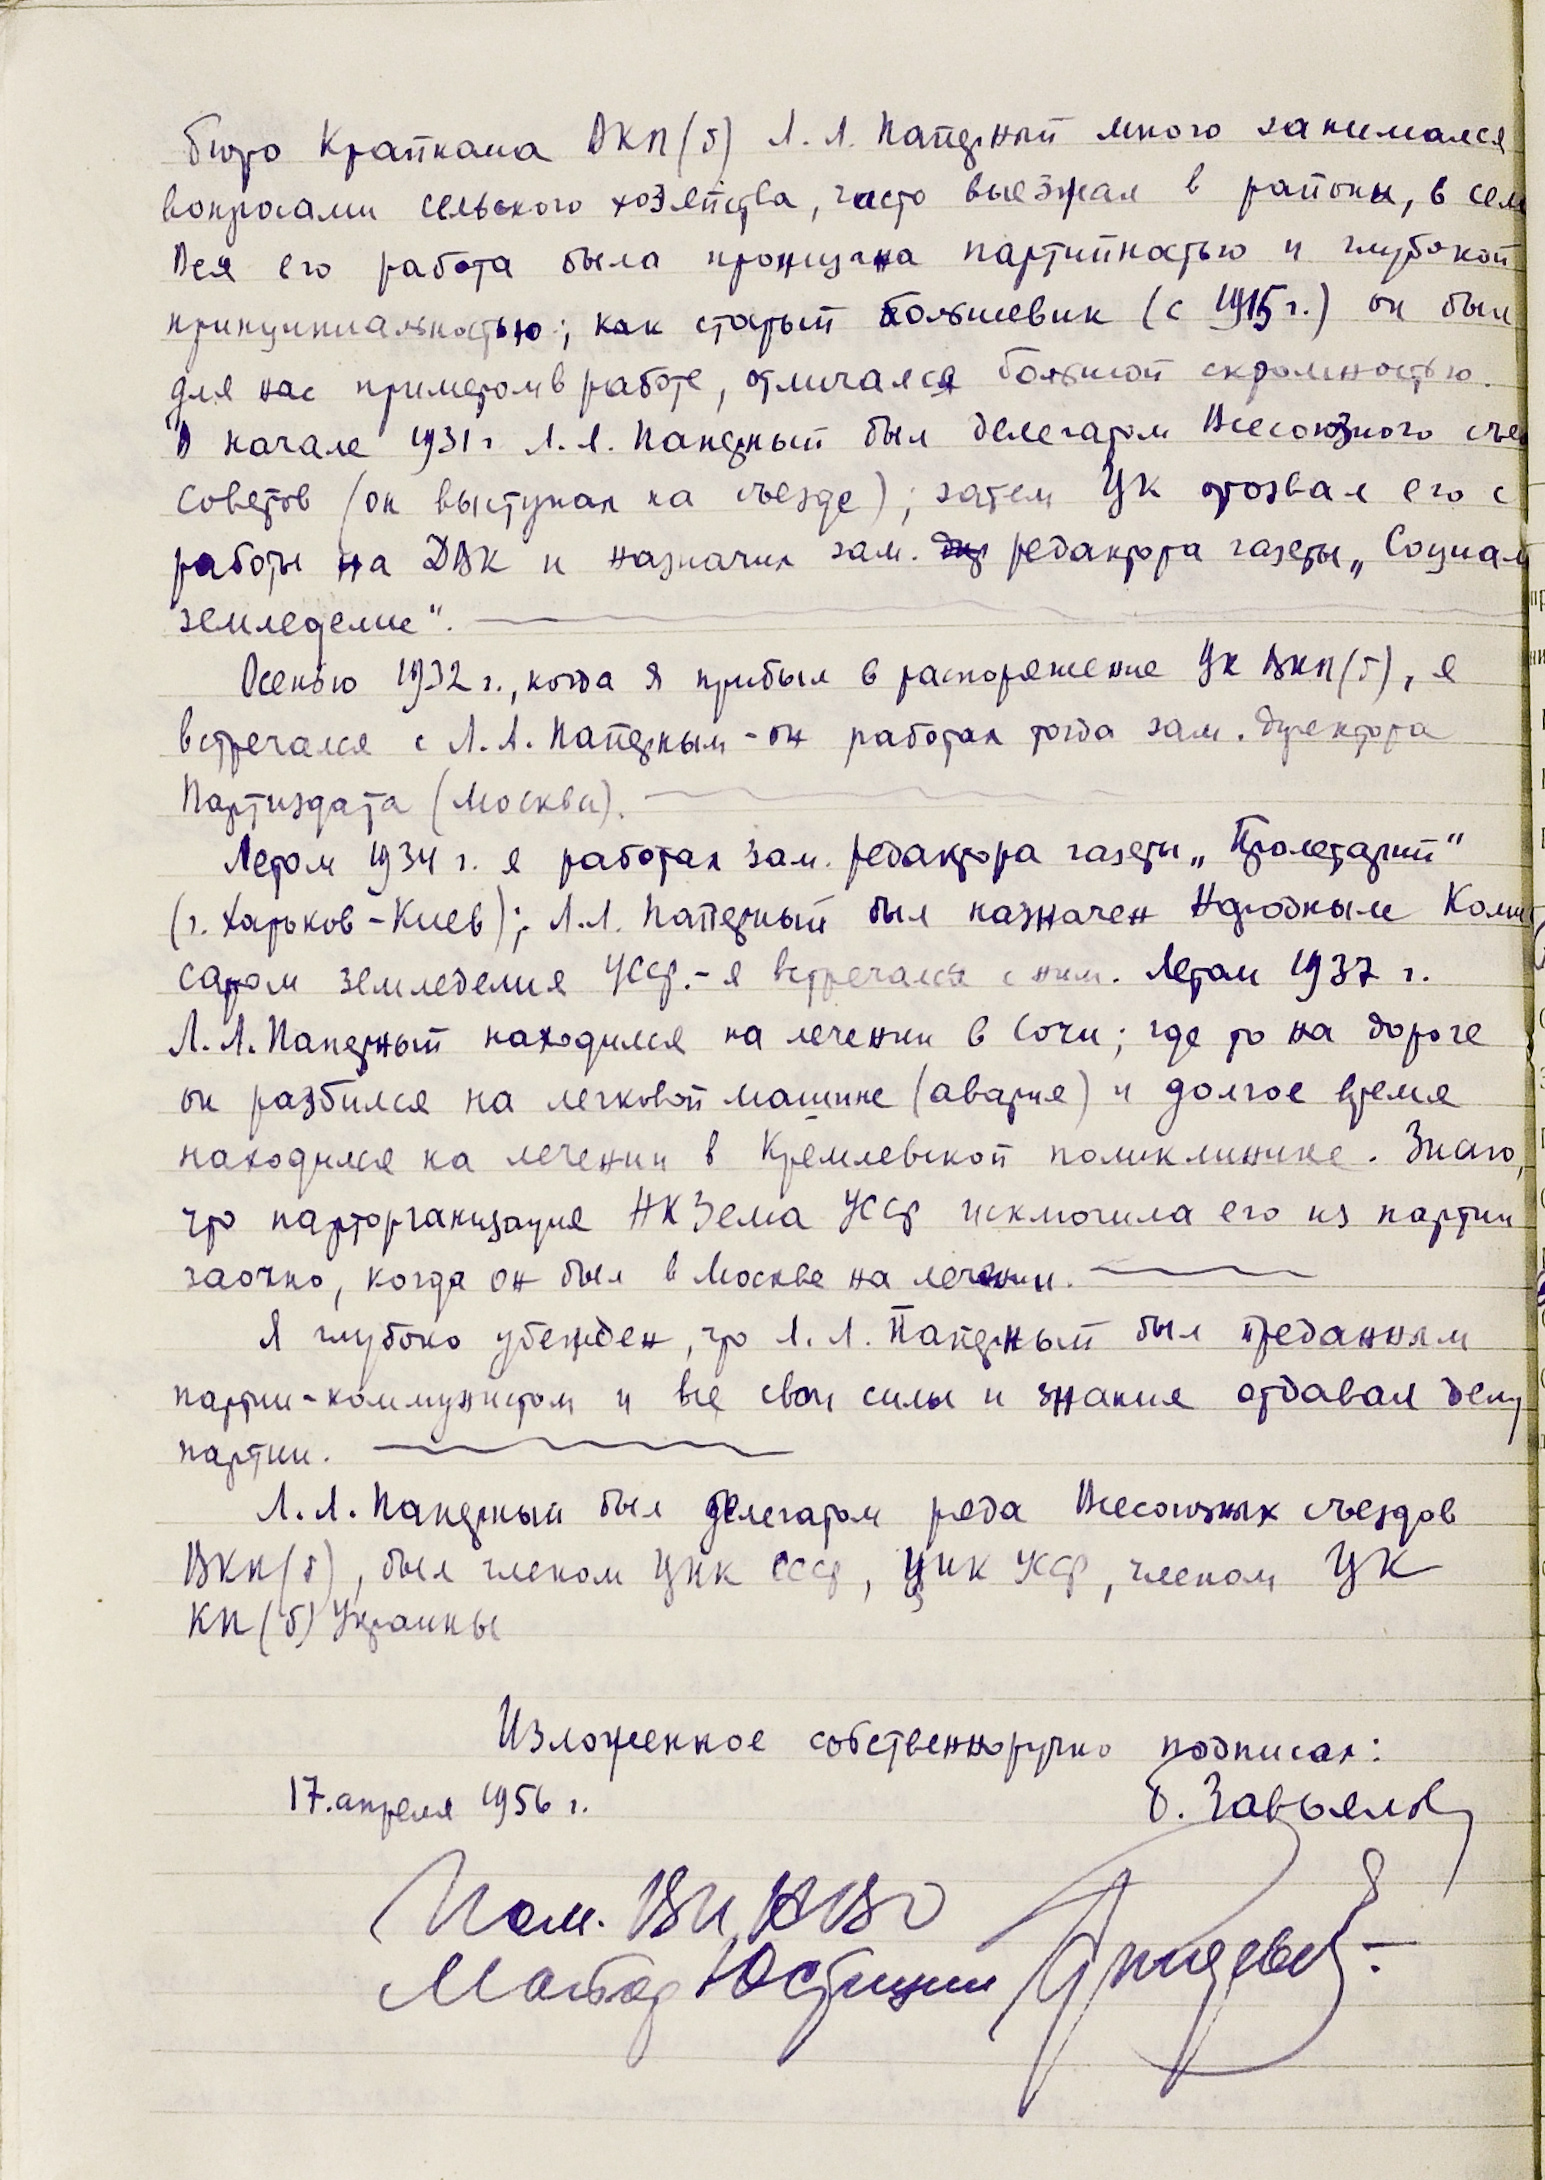 бюро Крайкома ВКП(б) Л.Л. Паперный много занимался
вопросами сельского хозяйства, часто выезжал в районы, в сел
Вся его работа была пронизана партийностью и глубокой
принципиальностью; как старый большевик (с 1915 г.) он был
для нас примером в работе, отличался большой скромностью.
В начале 1931 г Л.Л. Паперный был делегатом Всесоюзного съе
Советов (он выступал на съезде); затем ЦК отозвал его с
работы на ДВК и назначил зам. редактора газеты „Социал
земледелие".
Осенью 1932 г., когда я прибыл в распоряжение ЦК ВКП(б), я
встречался с Л.Л. Паперным - он работал тогда зам. директора
Партиздата (Москва).
Летом 1934 г. я работал зам. редактора газеты „Пролетарий"
(г. Харьков - Киев); Л.Л. Паперный был назначен Народным Комис
саром земледелия УССР. - я встречался с ним. Летом 1937 г.
Л.Л. Паперный находился на лечении в Сочи; где то на дороге
он разбился на легковой машине (авария) и долгое время
находился на лечении в Кремлевской поликлинике. Знаю,
что парторганизация НКЗема УССР исключила его из партии
заочно, когда он был в Москве на лечении.
Я глубоко убежден, что Л.Л. Паперный был преданным
партии - коммунистом и все свои силы и знания отдавал делу
партии.
Л.Л. Паперный был делегатом ряда Всесоюзных съездов
ВКП(б), был членом ЦИК СССР, ЦИК УССР, членом ЦК
КП(б) Украины
Изложенное собственноручно подписал:
17. апреля 1956 г. Завьялов
Пом. ВП КВО
Майор Юстиции